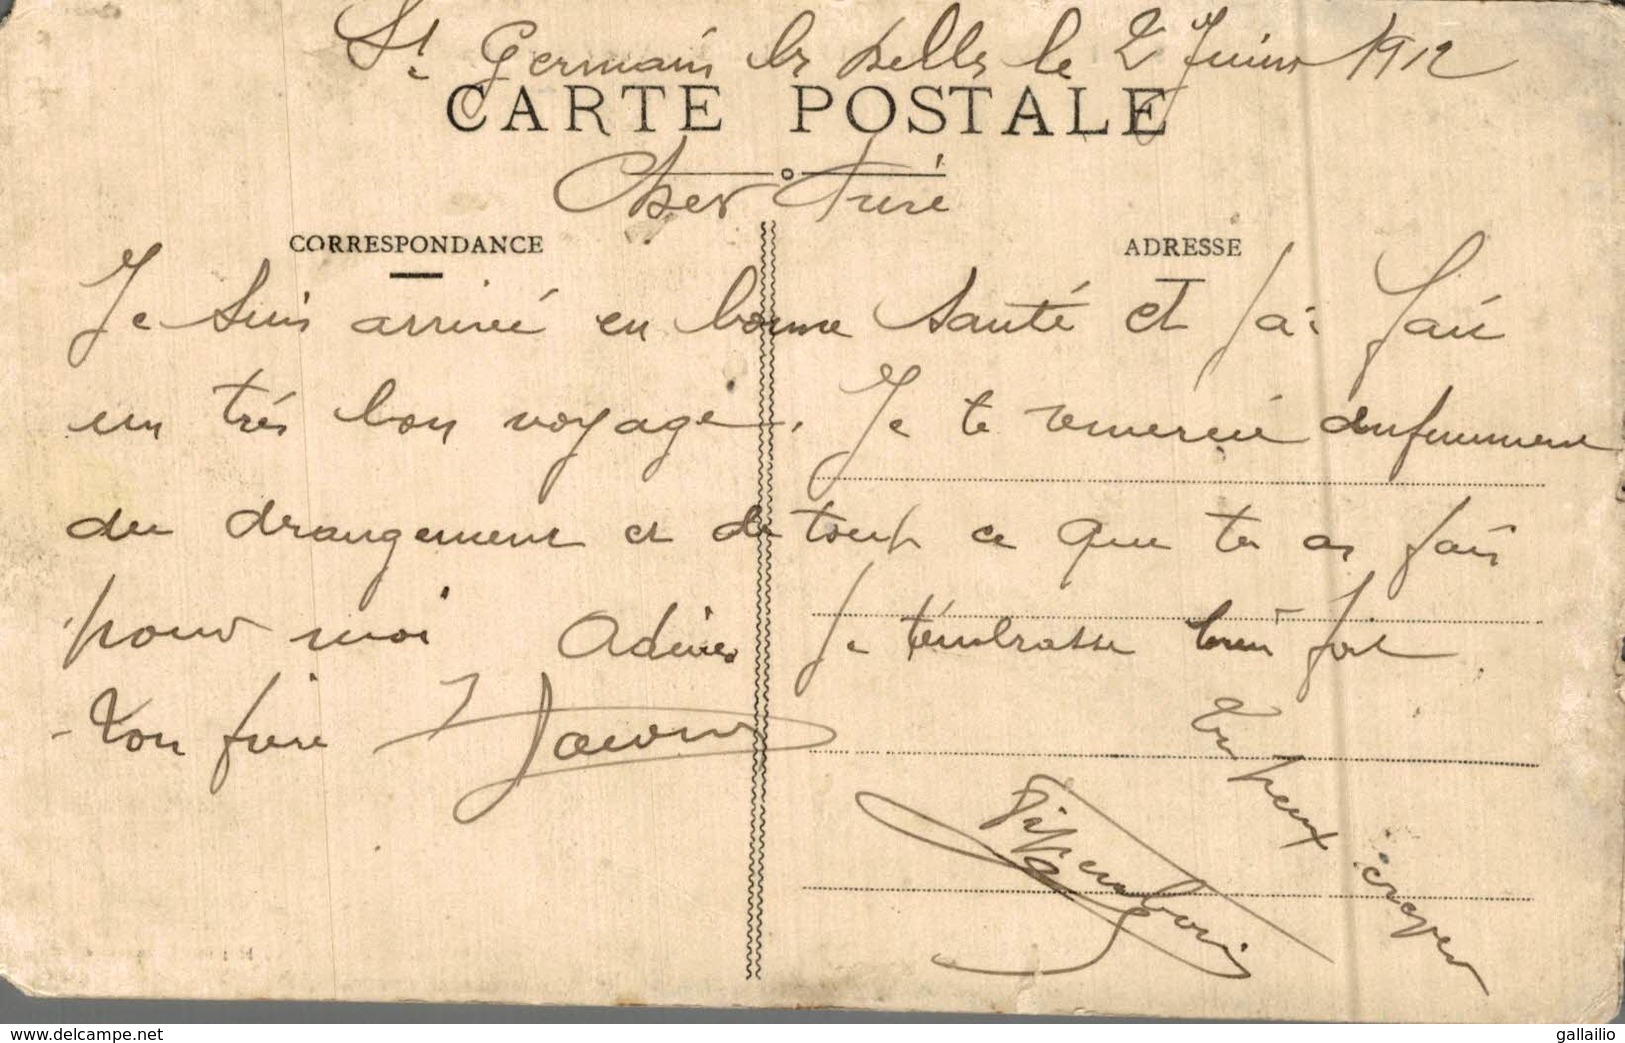 St Germain les belles le 2 Juin 1912
CARTE POSTALE
Cher frère
CORRESPONDANCE
ADRESSE
Je suis arrivé en bonne santé et j'ai fait
un très bon voyage. Je te remercie
du derangement et de tout ce que tu as fais
pour moi Adieu Je t'embrasse bien fort.
Ton frère
Tu peux
gallailio
delcampe.net